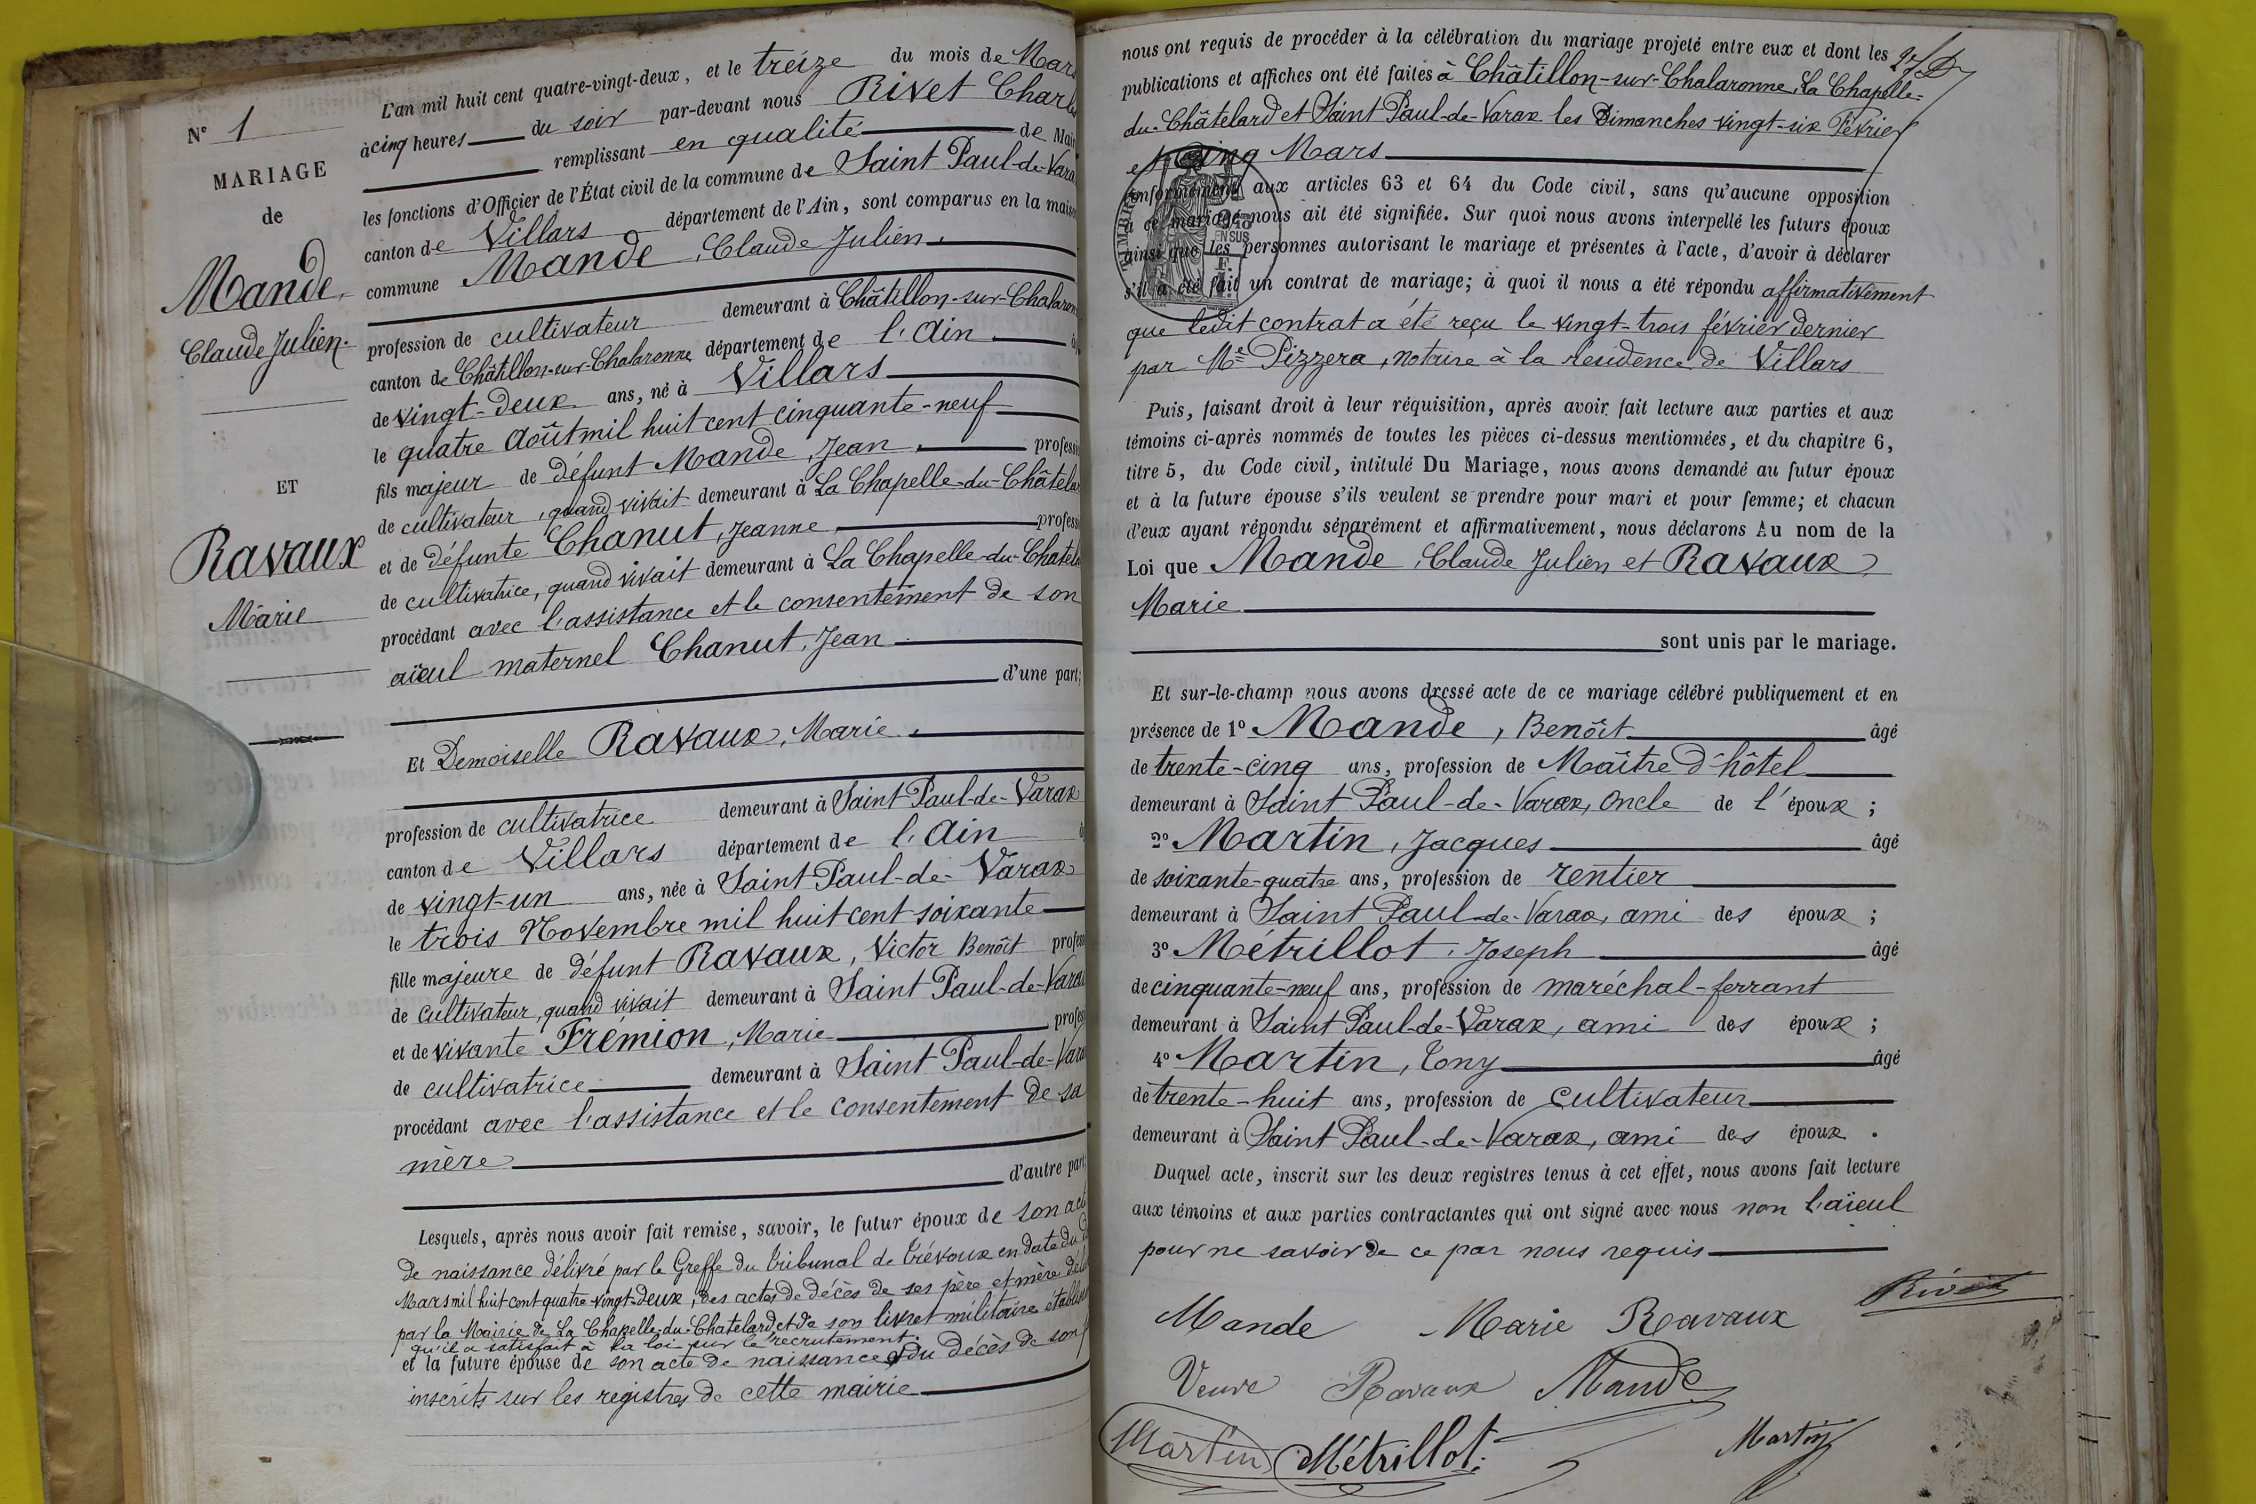 N° 1
MARIAGE
de
Mande,
Claude Julien.
ET
Ravaux
Marie
L'an mil huit cent quatre-vingt-deux, et le treize du mois de Mars
à cinq heures du soir par-devant nous Rivet Charles
remplissant en qualité de Maire
les fonctions d'Officier de l'État civil de la commune de Saint Paul-de-Varax
canton de Villars département de l'Ain, sont comparus en la maison
commune Mande, Claude Julien,
profession de cultivateur demeurant à Châtillon-sur-Chalaronne
canton de Châtillon-sur-Chalaronne département de l'Ain
de vingt-deux ans, né à Villars
le quatre Août mil huit cent cinquante-neuf
fils majeur de défunt Mande, Jean, profession
de cultivateur, quand vivait demeurant à La Chapelle-du-Châtelard
et de défunte Chanut, Jeanne profession
de cultivatrice, quand vivait demeurant à La Chapelle-du-Chatelard
procédant avec l'assistance et le consentement de son
aïeul maternel Chanut, Jean
d'une part;
Et Demoiselle Ravaux, Marie,
profession de cultivatrice demeurant à Saint Paul-de-Varax
canton de Villars département de l'Ain
de vingt-un ans, née à Saint-Paul-de-Varax
le trois Novembre mil huit cent soixante
fille majeure de défunt Ravaux, Victor Benoît profession
de cultivateur, quand vivait demeurant à Saint Paul-de-Varax
et de vivante Frémion, Marie profession
de cultivatrice demeurant à Saint Paul-de-Varax
procédant avec l'assistance et le consentement de sa
mère
d'autre part
Lesquels, après nous avoir fait remise, savoir, le futur époux de son acte
de naissance délivré par le Greffe du tribunal de Trévoux en date du
Mars mil huit cent quatre-vingt-deux, des actes de décès de ses père et mère
par la Mairie de La Chapelle-du-Chatelard et de son livret militaire établissant
qu'il a satisfait à la loi sur le recrutement.
et la future épouse de son acte de naissance & du décès de son
inscrits sur les registres de cette mairie
nous ont requis de procéder à la célébration du mariage projeté entre eux et dont les
publications et affiches ont été faites à Châtillon-sur-Chalaronne, La Chapelle-
du-Châtelard et Saint Paul-de-Varax les Dimanches vingt-six Février
et cinq Mars
conformément aux articles 63 et 64 du Code civil, sans qu'aucune opposition
à ce mariage nous ait été signifiée. Sur quoi nous avons interpellé les futurs époux
ainsi que les personnes autorisant le mariage et présentes à l'acte, d'avoir à déclarer
s'il a été fait un contrat de mariage; à quoi il nous a été répondu affirmativement
que ledit contrat a été reçu le vingt-trois février dernier
par Me Pizzera, notaire à la résidence de Villars
Puis, faisant droit à leur réquisition, après avoir fait lecture aux parties et aux
témoins ci-après nommés de toutes les pièces ci-dessus mentionnées, et du chapitre 6,
titre 5, du Code civil, intitulé Du Mariage, nous avons demandé au futur époux
et à la future épouse s'ils veulent se prendre pour mari et pour femme; et chacun
d'eux ayant répondu séparément et affirmativement, nous déclarons Au nom de la
Loi que Mande, Claude Julien et Ravaux
Marie
sont unis par le mariage.
Et sur-le-champ nous avons dressé acte de ce mariage célébré publiquement et en
présence de 1° Mande, Benoît âgé
de trente-cinq ans, profession de Maître d'hôtel
demeurant à Saint Paul-de-Varax, oncle de l'époux ;
2° Martin, Jacques âgé
de soixante-quatre ans, profession de rentier
demeurant à Saint Paul-de-Varax, ami des époux ;
3° Métrillot, Joseph âgé
de cinquante-neuf ans, profession de maréchal-ferrant
demeurant à Saint Paul-de-Varax, ami des époux ;
4° Martin, Tony âgé
de trente-huit ans, profession de cultivateur
demeurant à Saint Paul-de-Varax, ami des époux.
Duquel acte, inscrit sur les deux registres tenus à cet effet, nous avons fait lecture
aux témoins et aux parties contractantes qui ont signé avec nous non l'aïeul
pour ne savoir de ce par nous requis
Rivet
Mande Marie Ravaux
Veuve Ravaux Mande
Martin Métrillot. Martin